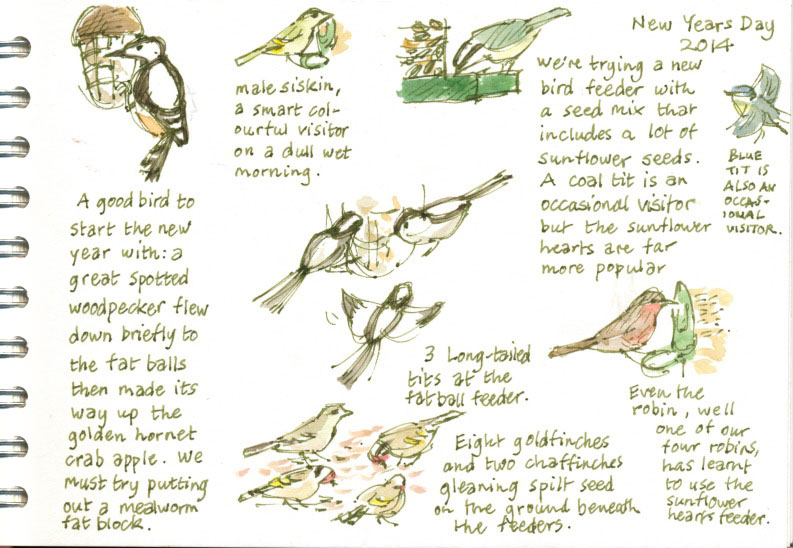 New Years Day
2014
male siskin,
a smart col-
ourful visitor
on a dull wet
morning.
We're trying a new
bird feeder with
a seed mix that
includes a lot of
sunflower seeds.
A coal tit is an
occasional visitor
but the sunflower
hearts are far
more popular
BLUE
TIT IS
ALSO AN
OCCAS-
IONAL
VISITOR.
A good bird to
start the new
year with: a
great spotted
woodpecker flew
down briefly to
the fat balls
then made its
way up the
golden hornet
crab apple. We
must try putting
out a mealworm
fat block.
3 Long-tailed
tits at the
fatball feeder.
Even the
robin, well
one of our
four robins,
has learnt
to use the
sunflower
hearts feeder.
Eight goldfinches
and two chaffinches
gleaning spilt seed
on the ground beneath
the feeders.